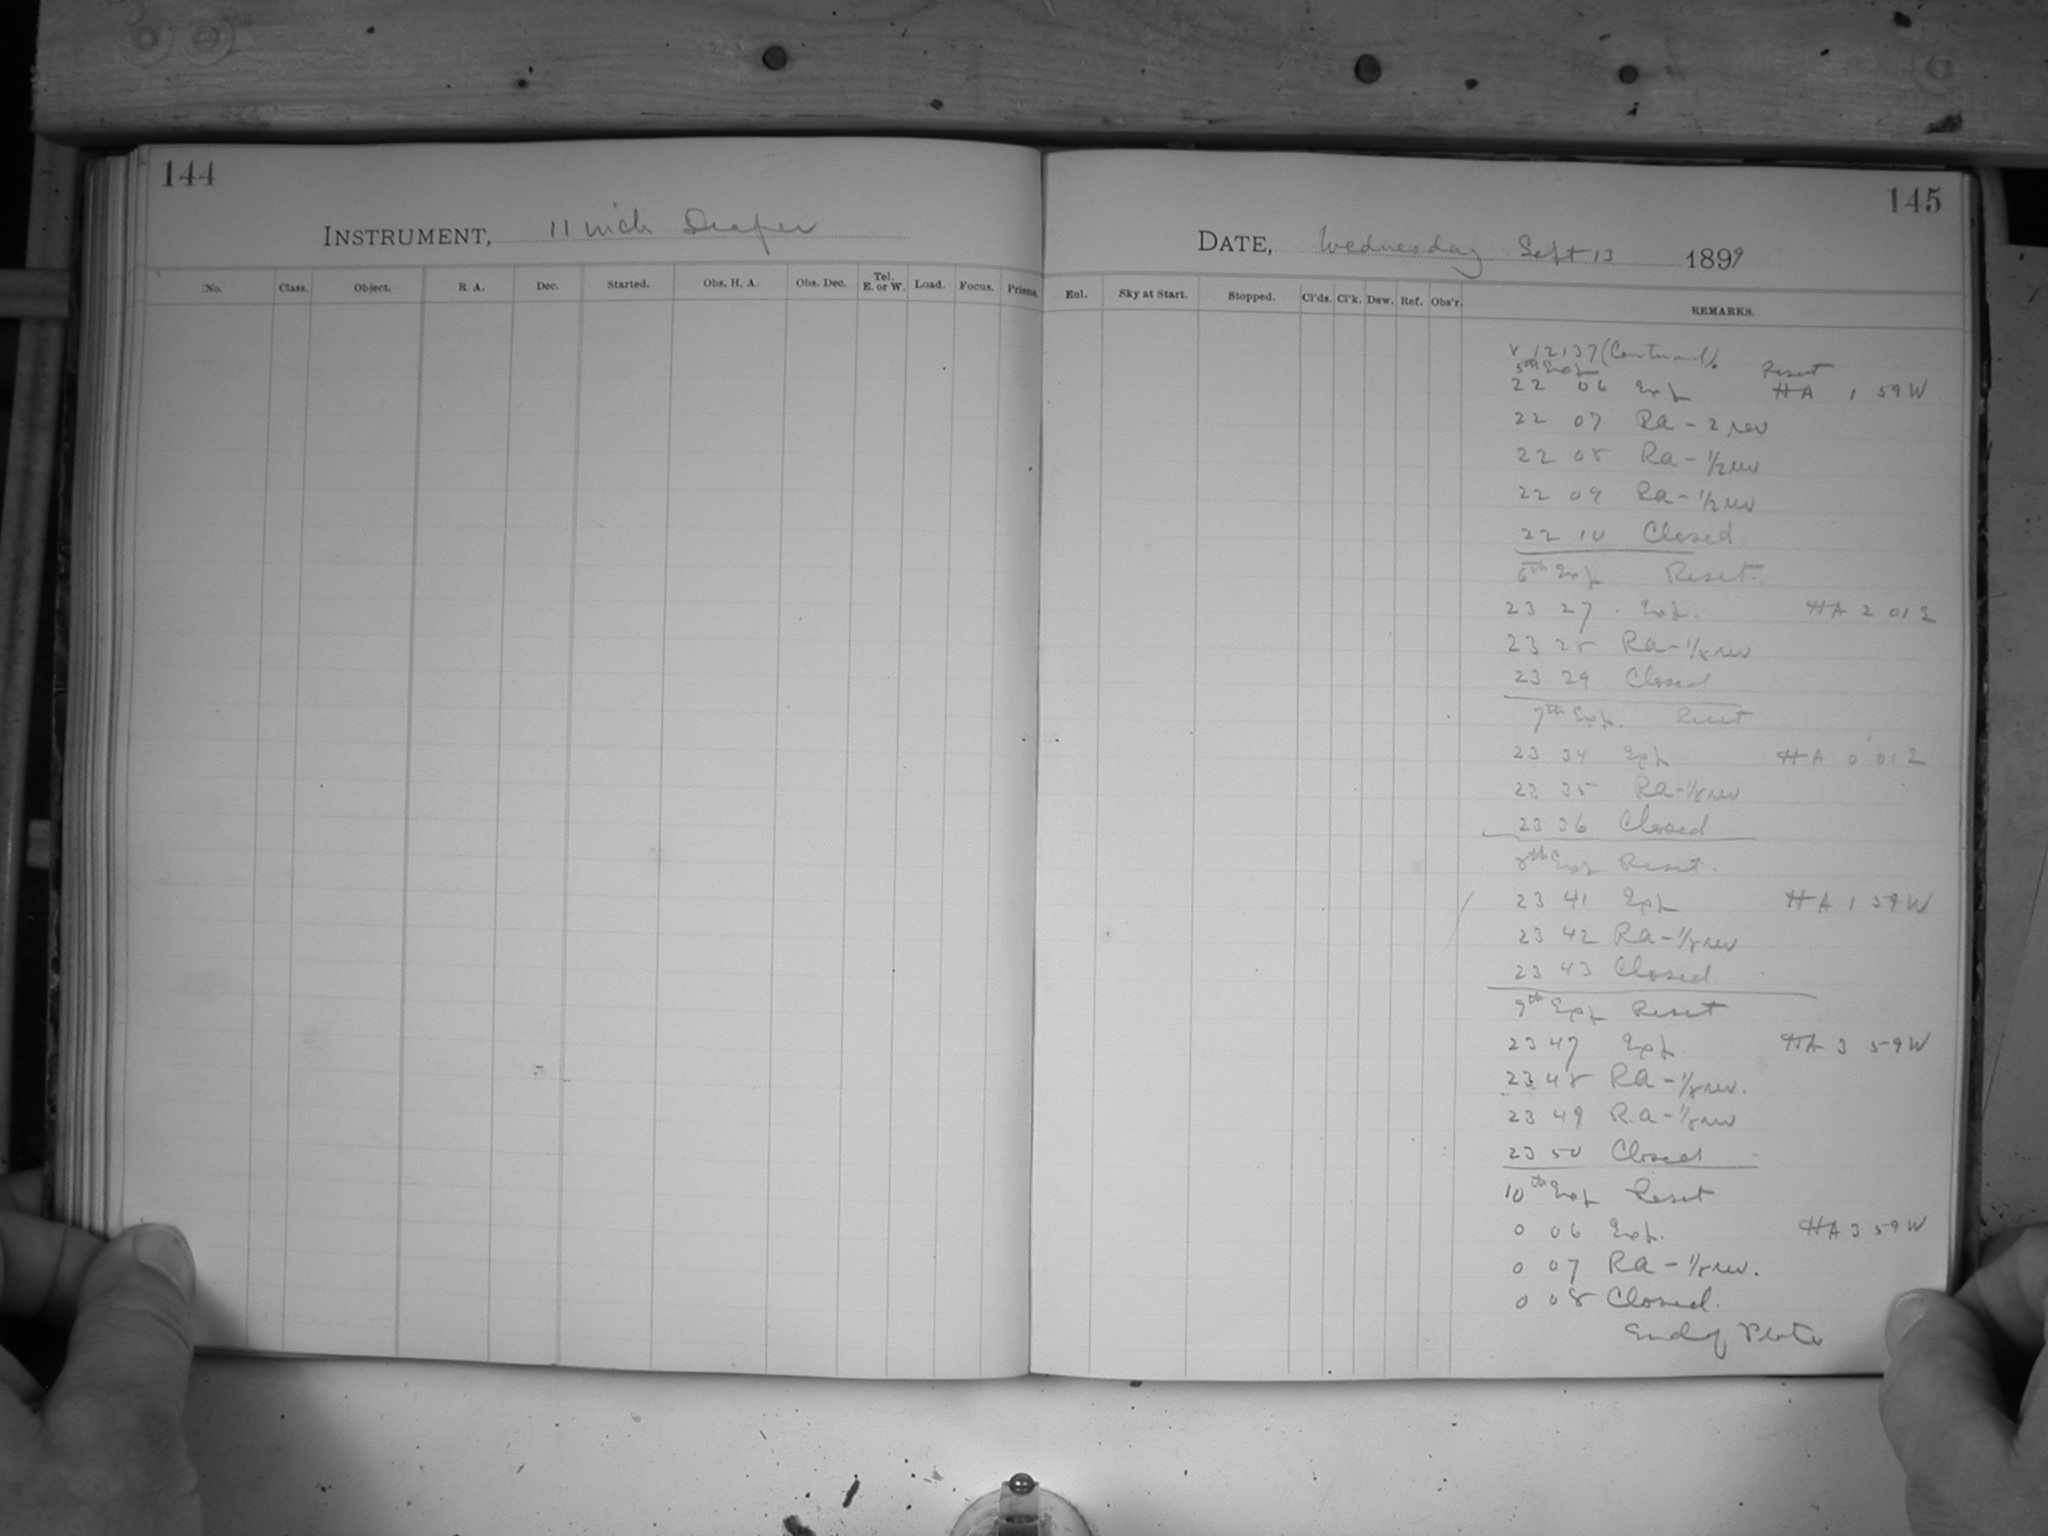 144
INSTRUMENT, 11 inch Draper
No. Class. Object. R. A. Dec. Started. Obs. H. A. Obs. Dec. Tel. E. or W. Load. Focus. Prisms.
145
DATE, Wednesday Sept 13 1899
Enl. Sky at Start. Stopped. Cl'ds. Cl'k. Dew. Ref. Obs'r. REMARKS.
12137 (Continued).
5th Exp Reset
22 06 Exp HA 1 59 W
22 07 Ra - 2 rev
22 08 Ra - 1/2 rev
22 09 Ra - 1/2 rev
22 10 Closed.
6th Exp Reset.
23 27 Exp. HA 2 01 E
23 28 Ra - 1/8 rev
23 29 Closed
7th Exp. Reset
23 34 Exp HA 0 01 E
23 35 Ra - 1/8 rev
23 36 Closed
8th Exp Reset.
23 41 Exp HA 1 59 W
23 42 Ra - 1/8 rev
23 43 Closed
9th Exp Reset
23 47 Exp HA 3 59 W
23 48 Ra - 1/8 rev.
23 49 Ra - 1/8 rev
23 50 Closed
10th Exp Reset
0 06 Exp. HA 3 59 W
0 07 Ra - 1/8 rev.
0 08 Closed.
End of Plate